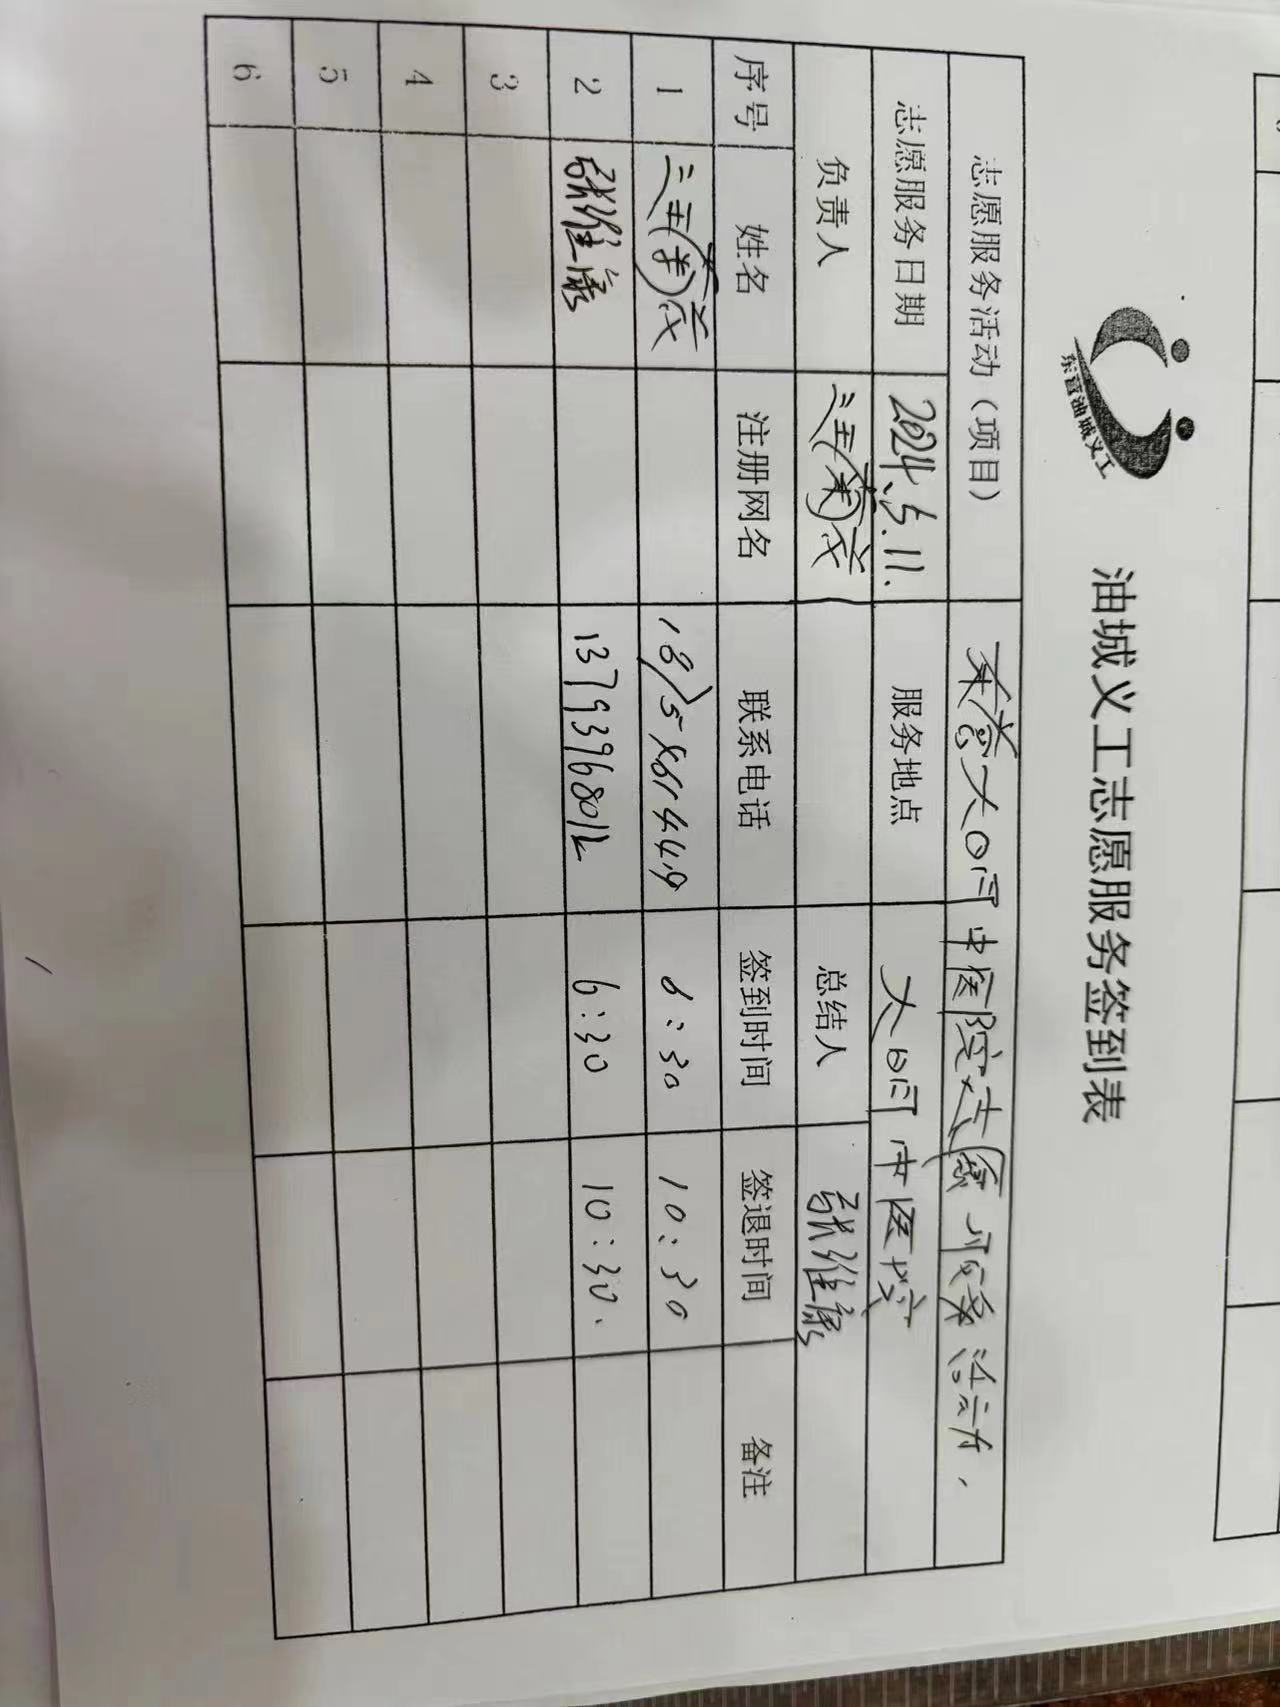 东营油城义工
油城义工志愿服务签到表
志愿服务活动（项目） 大 中医院志愿服务活动.
志愿服务日期 2024.5.11. 服务地点 中医院
负责人 总结人 张维康
序号 姓名 注册网名 联系电话 签到时间 签退时间 备注
1 6:30 10:30
2 张维康 13793968012 6:30 10:30.
3
4
5
6